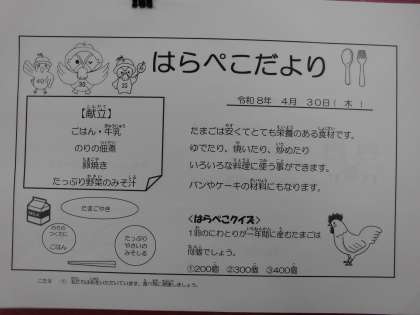 はらぺこだより
令和8年 4月 30日( 木 )
【献立】
ごはん・牛乳
のりの佃煮
卵焼き
たっぷり野菜のみそ汁
たまごは安くてとても栄養のある食材です。
ゆでたり、焼いたり、炒めたり
いろいろな料理に使う事ができます。
パンやケーキの材料にもなります。
たまごやき
のりの
つくだに
ごはん
たっぷり
やさいの
みそしる
<はらぺこクイズ>
1羽のにわとりが一年間に産むたまごは
何個でしょう。
①200個 ②300個 ③400個